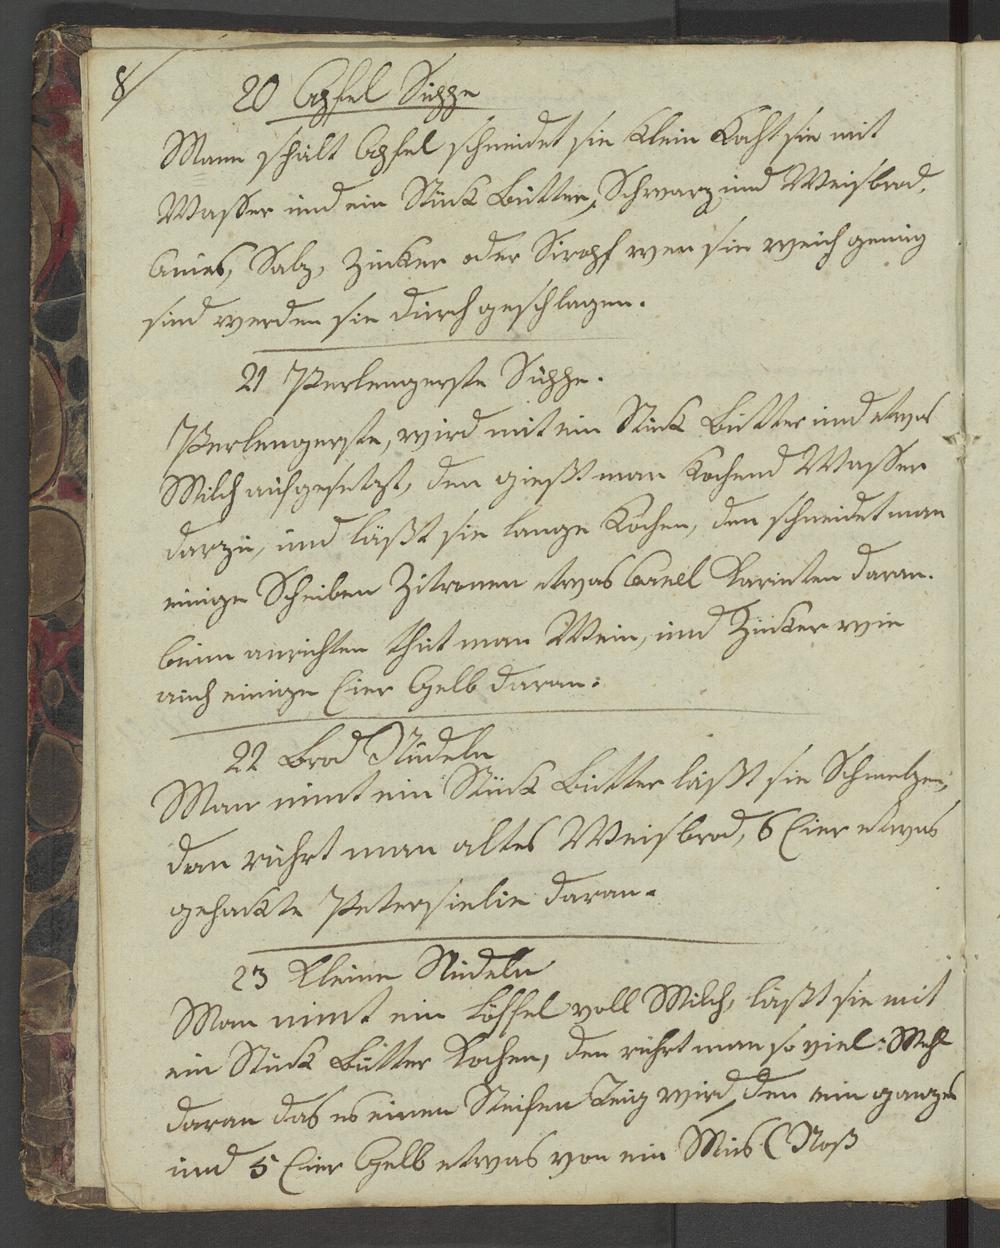 8/
20 Apfel Suppe
Mann schält Apfel schneidet sie klein kocht sie mit
Wasser und ein Stück Butter, Schwarz und Weisbrod,
Anies, Salz, Zucker oder Siropf wen sie weich genug
sind werden sie durch geschlagen.
21 Perlengerste Suppe.
Perlengerste, wird mit ein Stück Butter und etwas
Milch aufgesetzt, den gießt man kochend Wasser
darzu, und läßt sie lange kochen, den schneidet man
einige Scheiben Zitronen etwas Canel Karinten daran.
beim anrichten thut man Wein, und Zucker wie
auch einige Eier Gelb daran:
22 Brod Nudeln
Man nimt ein Stück Butter läßt sie Schmelzen,
dan rührt man altes Weisbrod, 6 Eier etwas
gehackte Petersielie daran.
23 Kleine Nudeln
Man nimt ein Löffel voll Milch, läßt sie mit
ein Stück Butter kochen, den rührt man so viel Mehl
daran das es einen Steifen Teig wird, den ein ganzes
und 5 Eier Gelb etwas von ein Mus(Noß